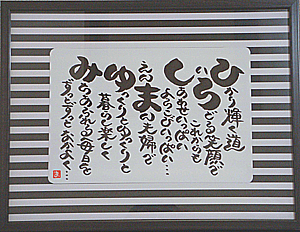 ひかり輝く道
いろどる笑顔で
これからも
しあわせいっぱい
よろこびいっぱい…
えんまん夫婦で
ゆっくりとゆっくりと
暮らし楽しく
みちあふれる毎日を
ずっとずっとなかよく…